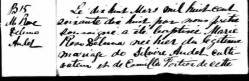 B15
M. Rose
Delima
Audet
Le dix huit Mars mil huit cent
soixante dix huit par nous prêtre
soussigné a été baptisée Marie
Rose Delima née hier du légitime
mariage de Audet culti
vateur et de Camille Fortier de cette